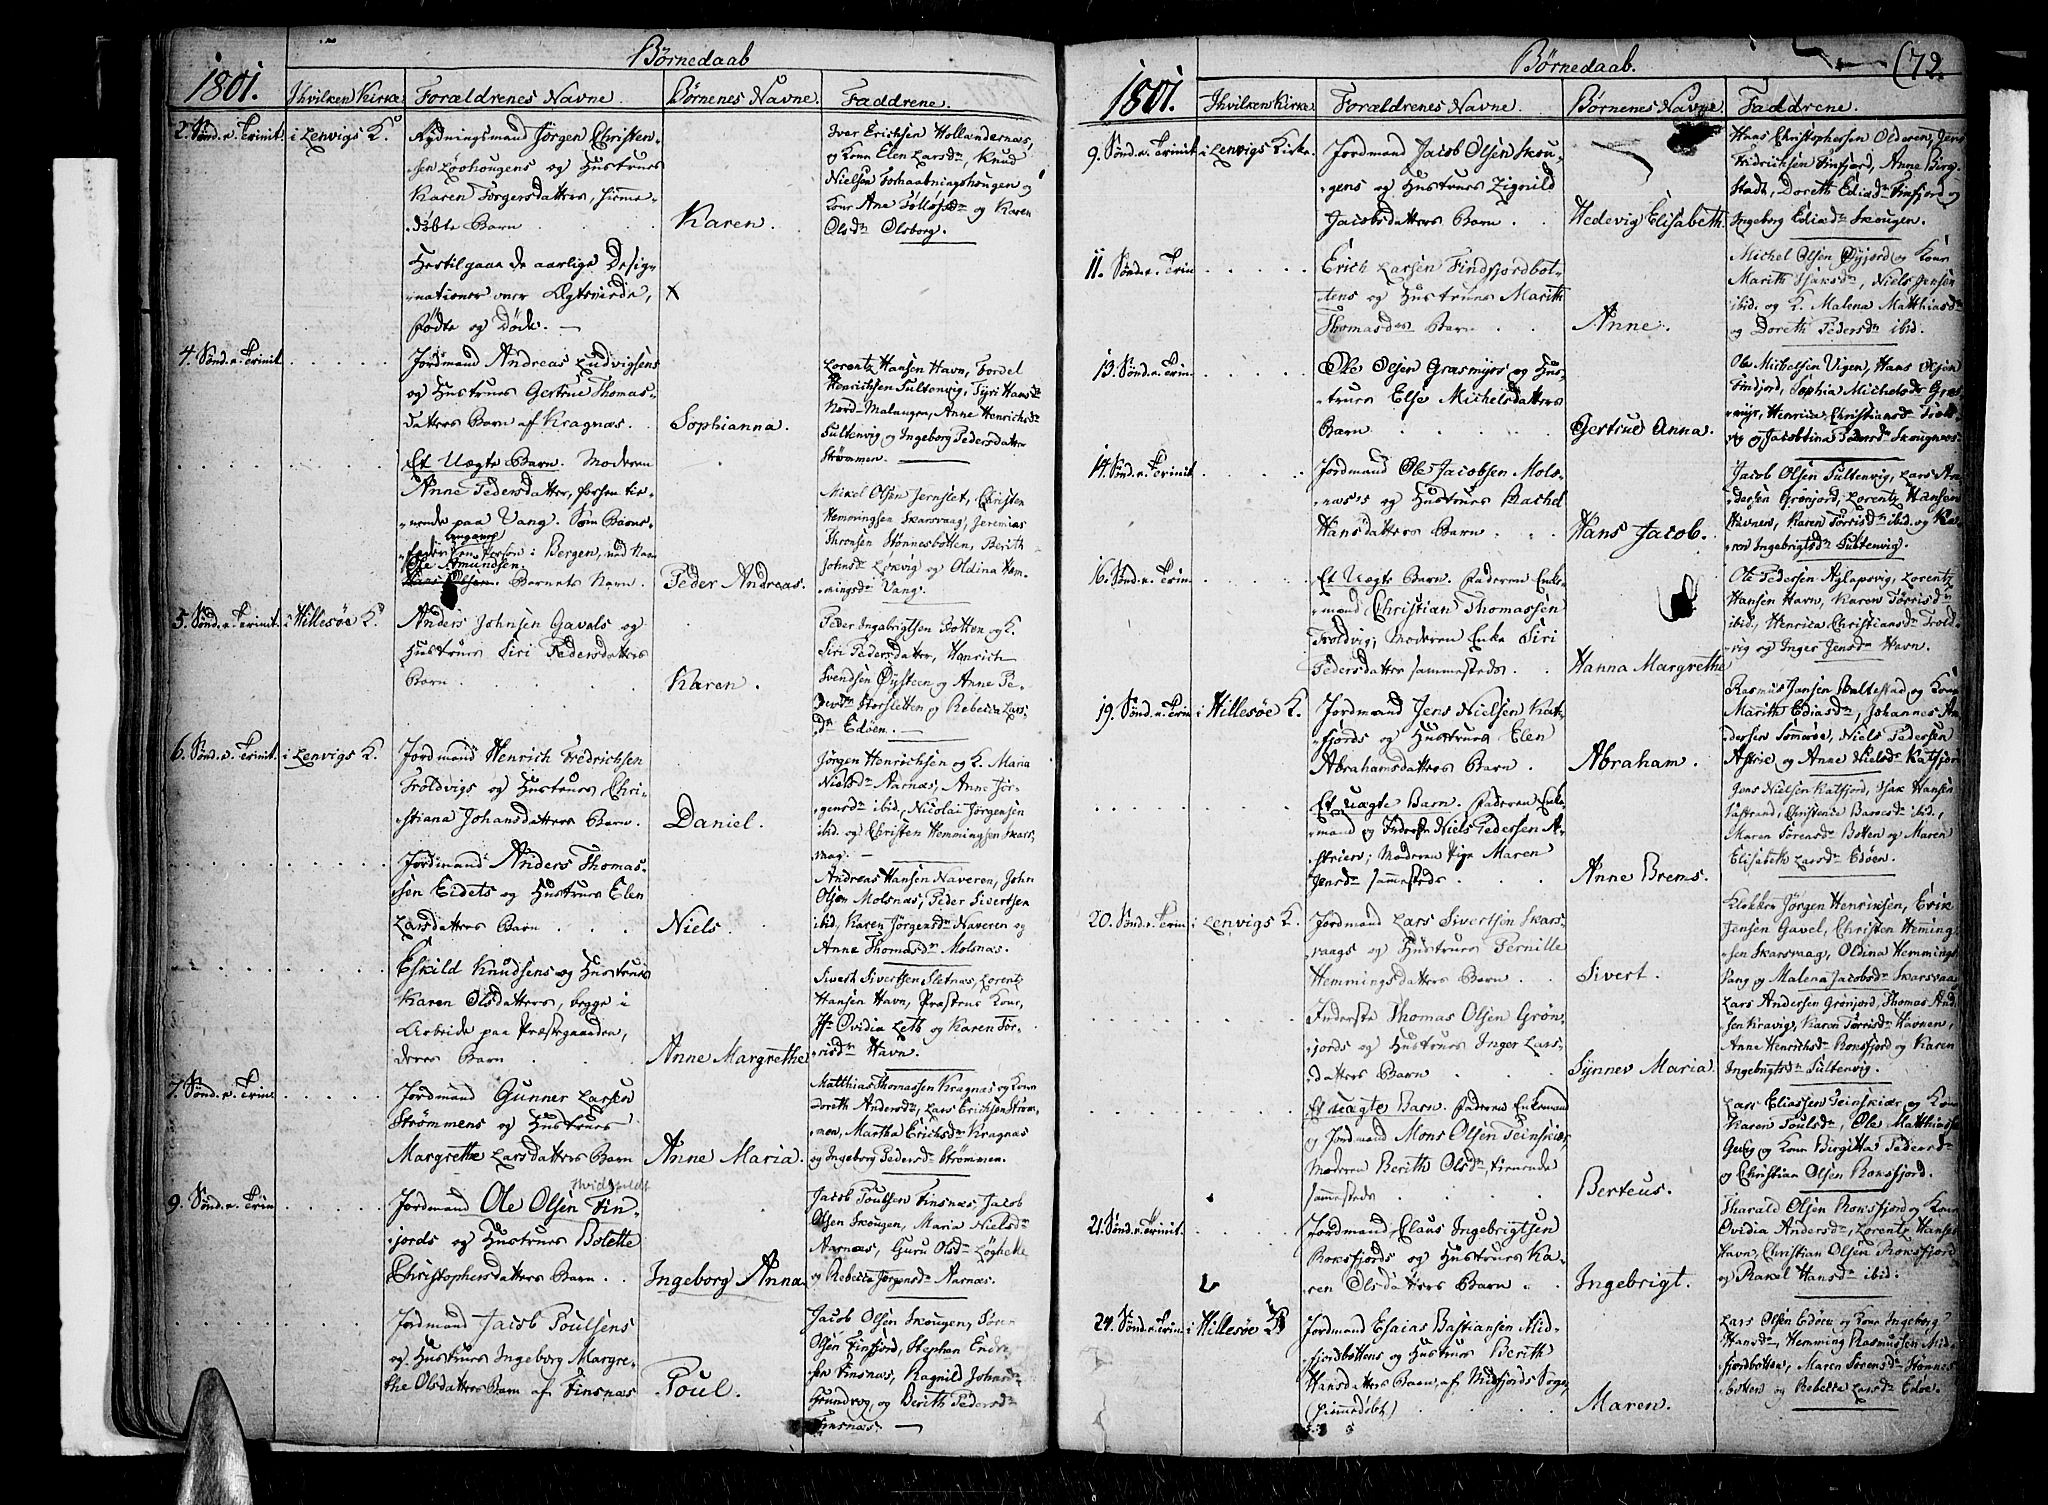 1801.
Børnedaab
Ihvilken Kirke. Forældrenes Navne. Børnenes Navne. Faddrene.
2. Sønd. e. Trinit. i Lenvigs K.
Rydningsmand Jørgen Christen-
sen Løvhougens og Hustrues
Karen Torgersdatters, hjemme-
døbte Barn
Karen.
Iver Erichsen Hollændernæs,
og Kone Elen Larsdr, Knud
Nielsen Forhaabningshougen og
Kone Ane Tollefsdr og Karen
Olsdr Olsborg.
Hertil gaae de aarlige Desig-
nationer over Ægteviede,
fødte og døde. —
X
4. Sønd. e. Trinit.
Jordmand Andreas Ludvigsens
og Hustrues Gertrue Thomas-
datters Barn af Kragnæs.
Sophianna.
Lorentz Hansen Havn, Fordel
Henrichsen Sultenvig, Tyri Hansdr
Nord-Malangen, Anne Henrichsdr
Sultenvig og Ingeborg Pedersdatter
Strømmen.
Et Uægte Barn. Moderen
Anne Pedersdatter, forhen tie-
nende paa Vang. Som Barne-
fader en ungkarl Person i Bergen, ved Navn
Ole Amundsen.
Barnets Navn.
Peder Andreas.
Mikel Olsen Jernslet, Christen
Hemmingsen Skarsvaag, Jeremias
Thronsen Stønnesbotten, Berith
Johnsdr Lenvig og Oldina Hem-
mingsdr Vang.
5. Sønd. e. Trinit. i Hillesøe K.
Anders Johnsen Gavels og
Hustrues Siri Pedersdatters
Barn.
Karen.
Peder Ingebrigtsen Botten og K.
Siri Pedersdatter, Henrich
Svendsen Øysteen og Anne Pe-
dersdr Storsletten og Rebecca Lars-
dr Edøen. —
6. Sønd. e. Trinit. i Lenvigs K.
Jordmand Henrich Fredrichsen
Troldvigs og Hustrues Chri-
stiana Johansdatters Barn.
Daniel.
Jørgen Henrichsen og K. Maria
Nielsdr Aarnæs, Anne Jør-
gensdr ibid, Nicolai Jørgensen
ibid. og Christen Hemmingsen Skars-
vaag. —
Jordmand Anders Thomas-
sen Eidets og Hustrues Elen
Larsdatters Barn
Niels.
Andreas Hansen Naveren, John
Olsen Molsnæs, Peder Sivertsen
ibid, Karen Jørgensdr Naveren og
Anne Thomasdr Molsnæs.
Eskild Knudsens og Hustrues
Karen Olsdatters, begge i
Arbeide paa Præstegaarden,
deres Barn
Anne Margrethe
Sivert Sivertsen Sletnæs, Lorentz
Hansen Havn, Præstens Kone,
Jfr Ovidia Leth og Karen Tør-
risdr Havn.
7. Sønd. e. Trin.
Jordmand Gunner Larsen
Strømmens og Hustrues
Margrethe Larsdatters Barn
Anne Maria.
Matthias Thomassen Kragnæs og Kone
Dorith Andersdr, Lars Erichsen Strøm-
men, Martha Erichsdr Kragnæs
og Ingeborg Pedersdr Strømmen.
9. Sønd. e. Trin
Jordmand Ole Olsen Fin-
fjords og Hustrues Bolette
Christophersdatters Barn
Ingeborg Anna
Jacob Poulsen Finsnæs, Jacob
Olsen Skougen, Maria Nielsdr
Aarnæs, Guru Olsdr Løghelle
og Rebecca Jørgensdr Aarnæs.
Jordmand Jacob Poulsens
og Hustrues Ingeborg Margre-
the Olsdatters Barn af Finsnæs
Poul.
Jacob Olsen Skougen, Søren
Olsen Finfjord, Stephan Endre-
sen Finsnæs, Ragnild Johnsdr
Grundvog, og Berith Pedersdr
Finsnæs. —
1801.
Børnedaab.
(72.
Ihvilken Kirke. Forældrenes Navne. Børnenes Navne Faddrene.
9. Sønd. e. Trinit. i Lenvigs Kirke.
Jordmand Jacob Olsen Skou-
gens og Hustrues Zignild
Jacobsdatters Barn
Hedevig Elisabeth.
Hans Christophersen Olderen, Jens
Fridrichsen Finfjord, Anne Berg-
stadt, Doreth Ediasdr Finfjord og
Ingeborg Ediasdr Skougen.
11. Sønd. e. Trin
Erich Larsen Findfjordbot-
tens og Hustrues Marith
Thomasdrs Barn
Anne.
Michel Olsen Øyjord og Kone
Marith Isaksdr, Niels Jensen
ibid. og K. Malena Matthiasdr
og Doreth Pedersdr ibid.
13. Sønd. e. Trin
Ole Olsen Græsmyrs og Hus-
trues Else Michelsdatters
Barn
Gertrue Anna.
Ole Michelsen Vigen, Hans Olsen
Finfjord, Sophia Michelsdr Græs-
myr, Henrica Christiansdr Trold-
vig og Jacobtina Pedersdr Skougnæs.
14. Sønd. e. Trinit.
Jordmand Ole Jacobsen Mols-
næs's og Hustrues Rachel
Hansdatters Barn
Hans Jacob.
Jacob Olsen Sultenvig, Lars An-
dersen Grønjord, Lorentz Hansen
Havnen, Karen Tørrisdr ibid. og Ka-
ren Ingebrigtsdr Sultenvig.
16. Sønd. e. Trin.
Et Uægte Barn. Faderen Enke-
mand Christian Thomassen
Troldvig, Moderen Enke Siri
Pedersdatter sammesteds.
Hanna Margrethe
Ole Pedersen Aglapsvig, Lorentz
Hansen Havn, Karen Tørrisdr
ibid, Henrica Christiansdr Trold-
vig og Inger Jensdr Havn.
19. Sønd. e. Trin i Hillesøe K.
Jordmand Jens Nielsen Kat-
fjords og Hustrues Elen
Abrahamsdatters Barn
Abraham.
Rasmus Jansen Baltestad og Kone
Marith Ediasdr, Johannes An-
dersen Sommerøe, Niels Pedersen
Astrie og Anne Nielsdr Katfjord
Et uægte Barn. Faderen Enke
mand og Inderst Niels Pedersen A-
strien; Moderen Pige Maren
Jensdr sammesteds
Anne Brems.
Jens Nielsen Katfjord, Isak Hansen
Sastrand, Christence Baroesdr ibid.,
Maren Sørensdr Botten og Maren
Elisabeth Larsdr Edøen.
20. Sønd. e. Trin i Lenvigs K.
Jordmand Lars Sivertsen Skars-
vaags og Hustrues Pernille
Hemmingsdatters Barn
Sivert.
Klokker Jørgen Henriksen, Erik
Jensen Gavel, Christen Heming-
sen Skarsvaag, Oldina Hemmingsdr
Vang og Malena Jacobsdr Skarsvaag
Inderste Thomas Olsen Grøn-
jords og Hustrues Inger Lars-
datters Barn
Synnev Maria.
Lars Andersen Grønjord, Thomas And-
sen Kravig, Karen Tørrisdr Havnen,
Anne Henrichsdr Roksfjord og Karen
Ingebrigtsdr Sultenvig.
Et uægte Barn. Faderen Enkemand
og Jordmand Mons Olsen Teinskiær,
Moderen Berith Olsdr tienende
sammesteds
Berteus.
Lars Eliassen Teinskiær og Kone
Karen Poulsdr, Ole Matthiassen
Gevig og Kone Birgitta Pedersdr
og Christian Olsen Roksfjord.
21. Sønd. e. Trinit.
Jordmand Claus Ingebrigtsen
Roksfjords og Hustrues Ka-
ren Olsdatters Barn
Ingebrigt.
Tharald Olsen Roksfjord og Kone
Ovidia Andersdr, Lorentz Hansen
Havn, Christian Olsen Roksfjord
og Rakel Hansdr ibid.
24. Sønd. e. Trin. i Hillesøe K
Jordmand Esaias Bastiansen Mid-
fjordbottens og Hustrues Berith
Hansdatters Barn, af Midfjords Sogn,
(hjemmedøbt)
Maren.
Lars Olsen Edøen og Kone Ingeborg
Hansdr, Hemming Rasmussen Mid-
fjordbotten, Maren Sørensdr Stønnes-
botten og Rebecca Larsdr Edøe.